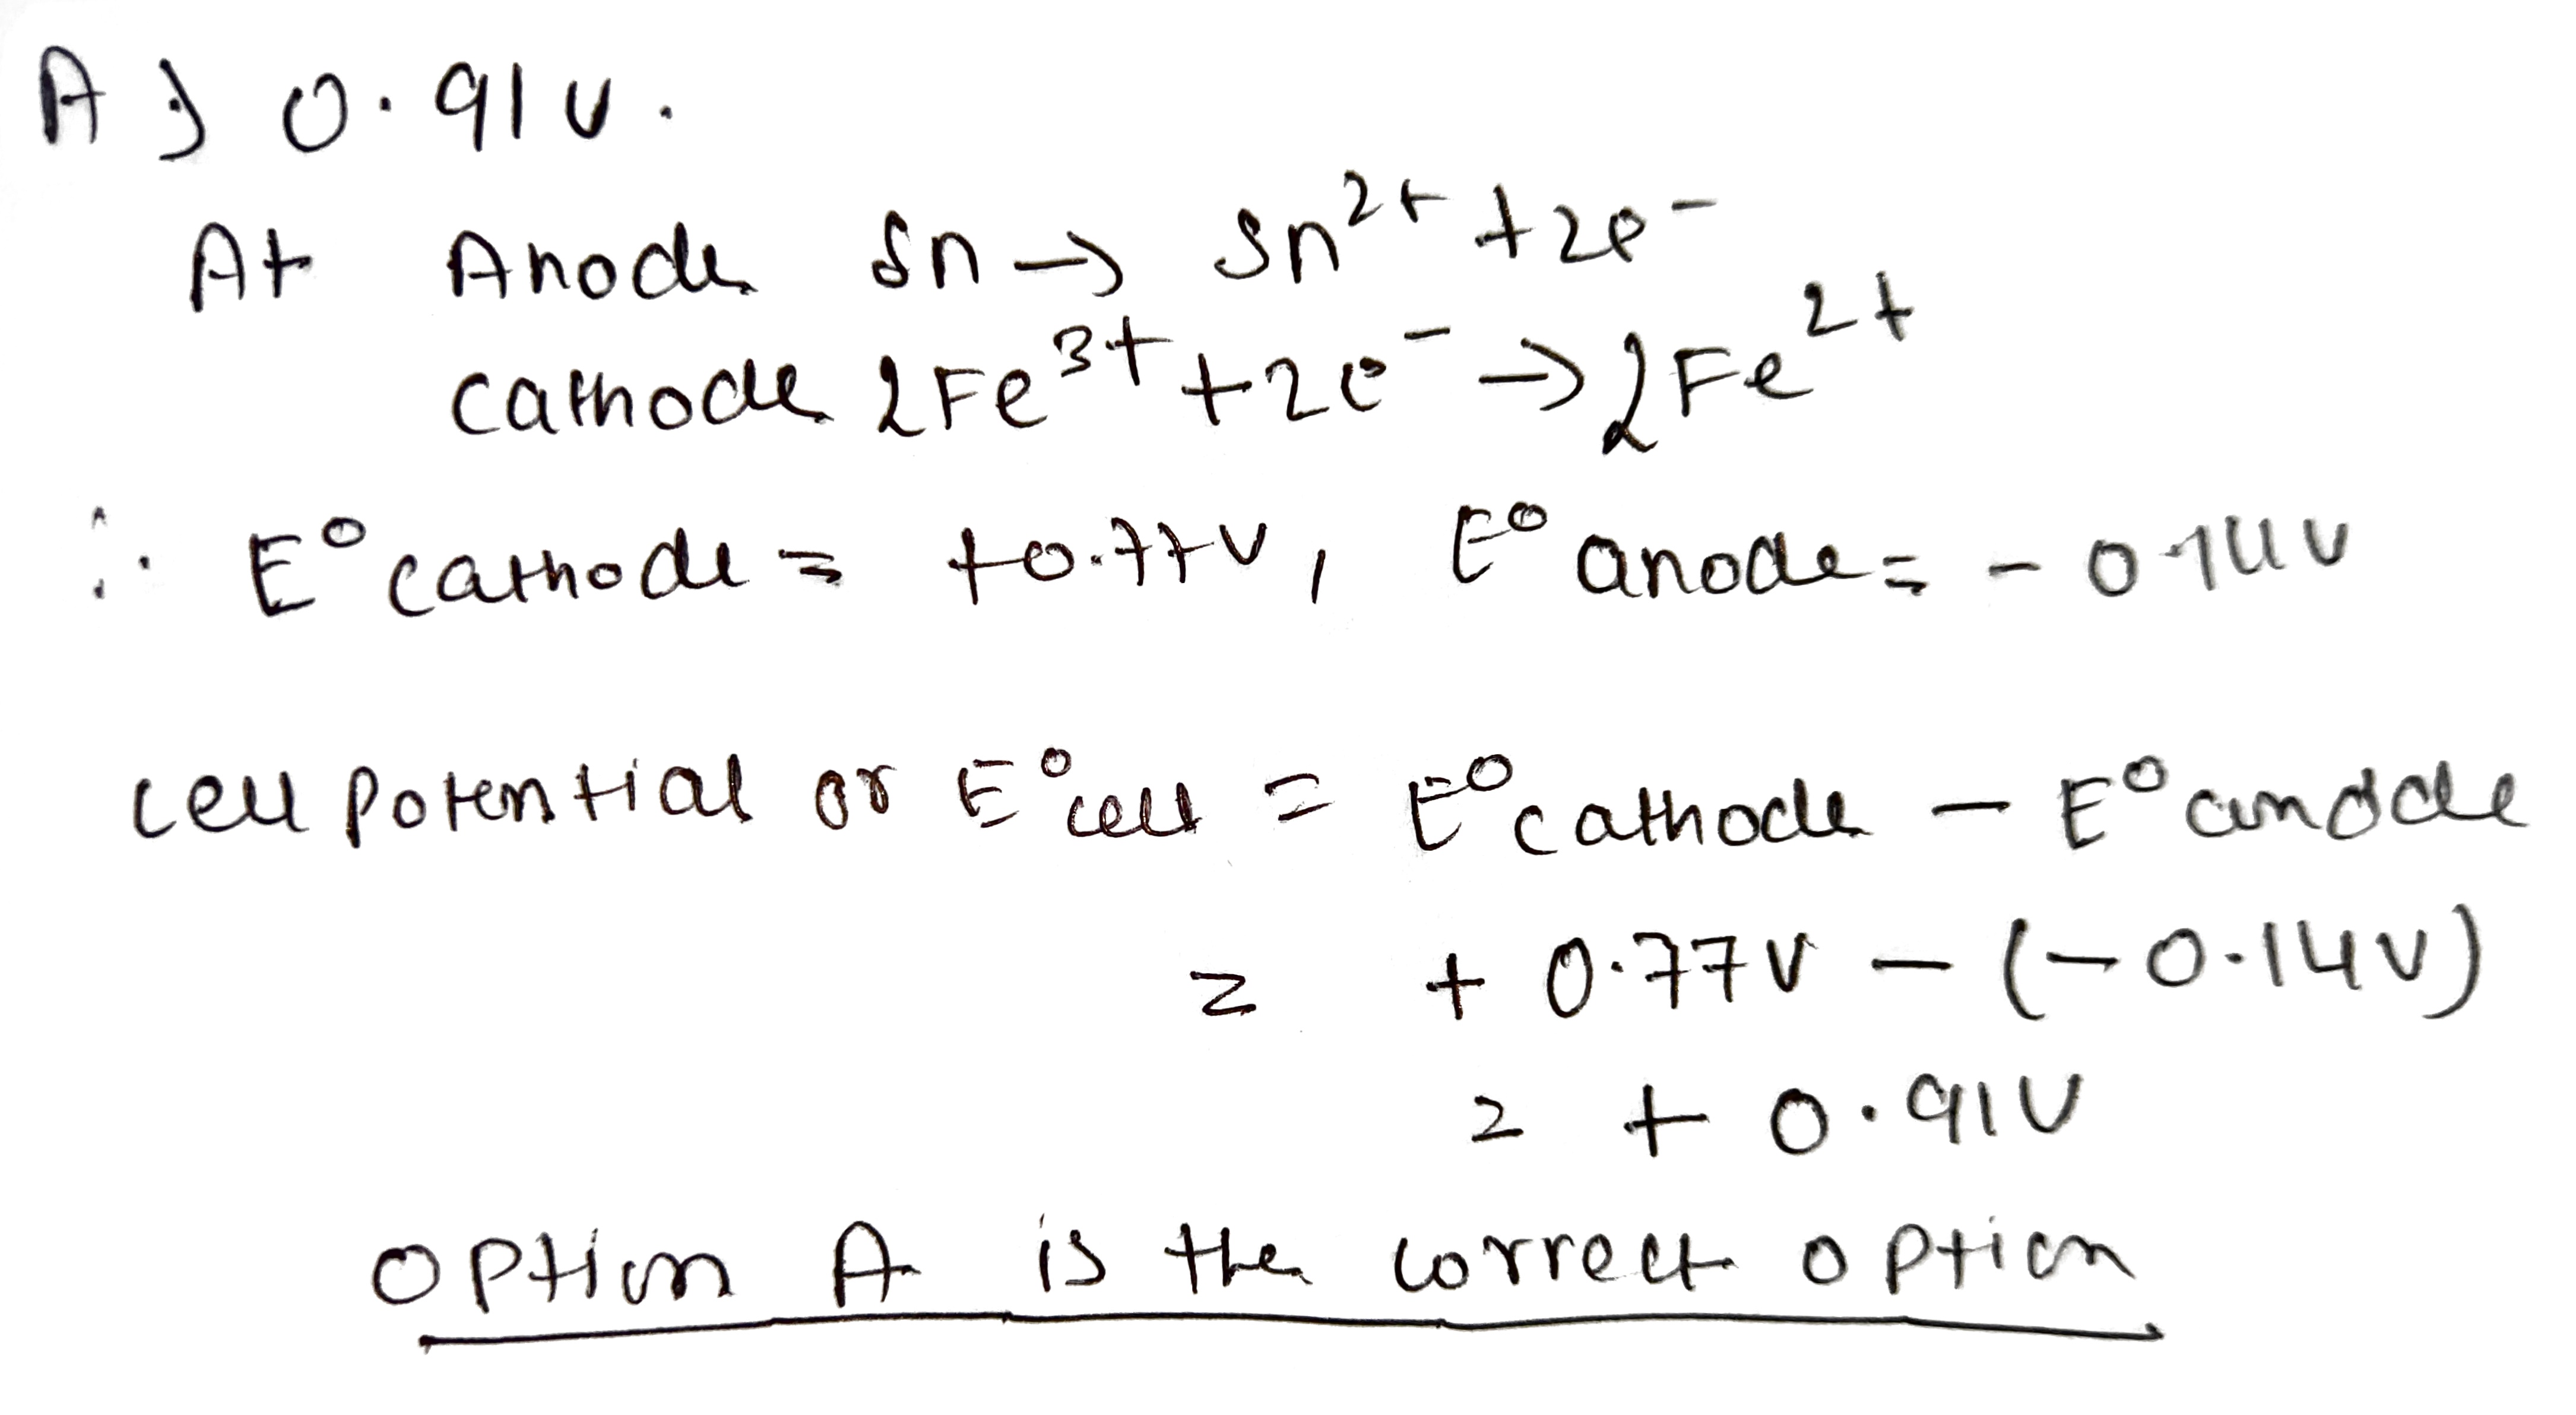 A) 0.91V.
At Anode Sn → Sn²⁺ + 2e⁻
Cathode 2Fe³⁺ + 2e⁻ → 2Fe²⁺
∴ E° cathode = +0.77V, E° anode = - 0.14V
Cell potential or E° cell = E° cathode - E° anode
= + 0.77V - (-0.14V)
= + 0.91V
Option A is the correct option